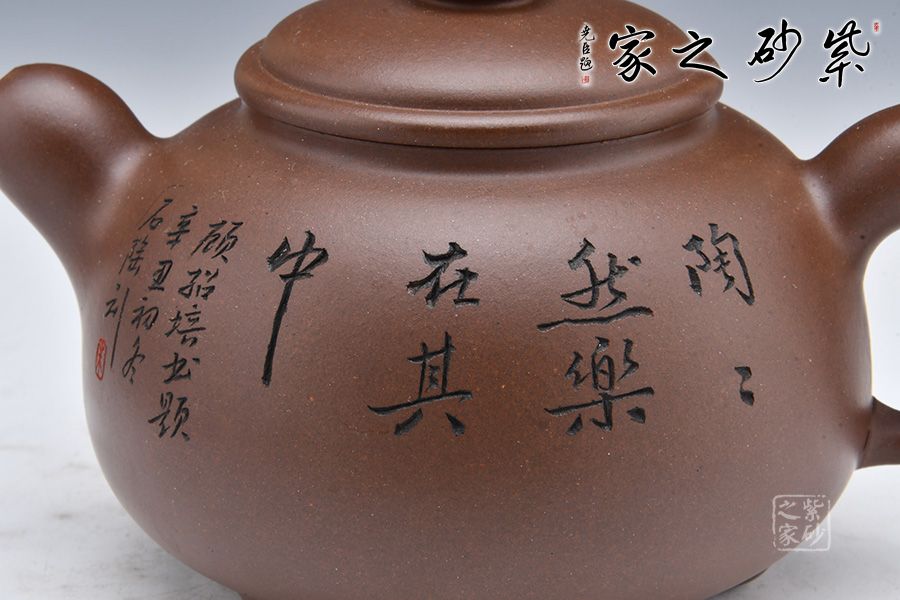 紫砂之家
尧臣题
陶〻
然樂
在其
中
顾绍培书题
辛丑初冬
石陶刻
紫砂
之家